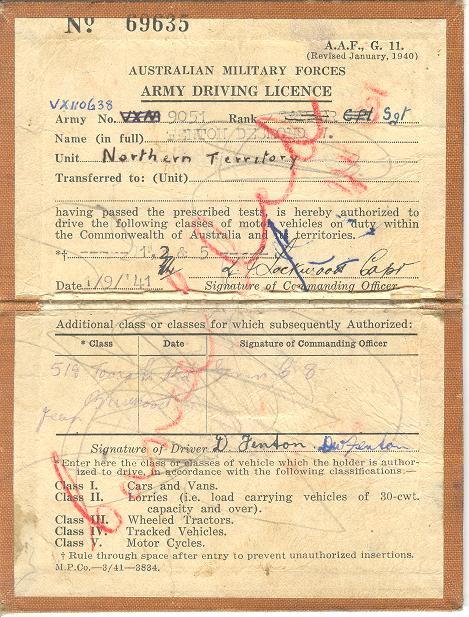 No 69635
A.A.F., G. 11.
(Revised January, 1940)
AUSTRALIAN MILITARY FORCES
ARMY DRIVING LICENCE
VX110638
Army No. 9051 Rank Cpl Sgt
Name (in full) FENTON DESMOND W.
Unit Northern Territory
Transferred to: (Unit)
having passed the prescribed tests, is hereby authorized to
drive the following classes of motor vehicles on duty within
the Commonwealth of Australia and its territories.
*† 1, 2 & 5
Date 1/9/'41 Signature of Commanding Officer Capt
Additional class or classes for which subsequently Authorized:
* Class Date Signature of Commanding Officer
Signature of Driver D Fenton DW Fenton
*Enter here the class or classes of vehicle which the holder is author-
ized to drive, in accordance with the following classifications:—
Class I. Cars and Vans.
Class II. Lorries (i.e. load carrying vehicles of 30-cwt.
capacity and over).
Class III. Wheeled Tractors.
Class IV. Tracked Vehicles.
Class V. Motor Cycles.
† Rule through space after entry to prevent unauthorized insertions.
M.P.Co.—3/41—3834.
Cancelled